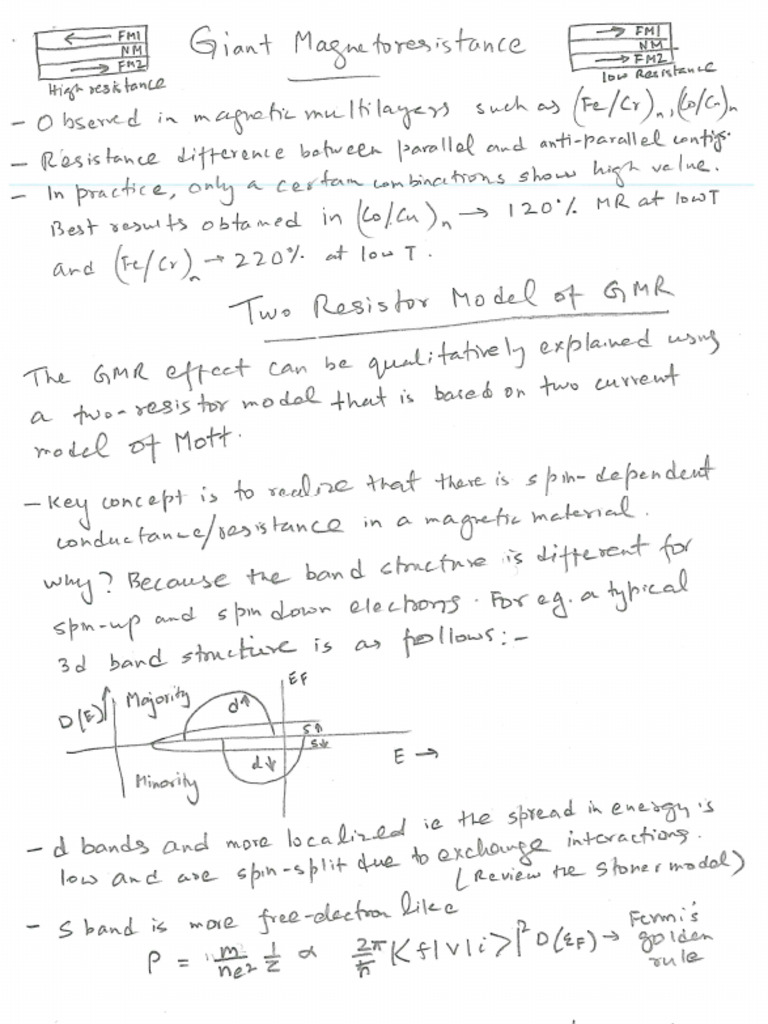 FM1
NM
FM2
High resistance
Giant Magnetoresistance
FM1
NM
FM2
low Resistance
- Observed in magnetic multilayers such as (Fe/Cr)n, (Co/Cu)n
- Resistance difference between parallel and anti-parallel configs.
- In practice, only a certain combinations show high value.
Best results obtained in (Co/Cu)n → 120% MR at low T
and (Fe/Cr)n → 220% at low T.
Two Resistor Model of GMR
The GMR effect can be qualitatively explained using
a two-resistor model that is based on two current
model of Mott.
- Key concept is to realize that there is spin-dependent
conductance/resistance in a magnetic material.
Why? Because the band structure is different for
spin-up and spin down electrons. For eg. a typical
3d band structure is as follows:-
D(E)↑
Majority
d↑
EF
s↑
s↓
d↓
E →
Minority
- d bands and more localized ie the spread in energy is
low and are spin-split due to exchange interactions.
(Review the Stoner model)
- S band is more free-electron like
ρ = m/ne² 1/τ ∝ 2π/ħ |<f|V|i>|² D(EF) → Fermi's
golden
rule